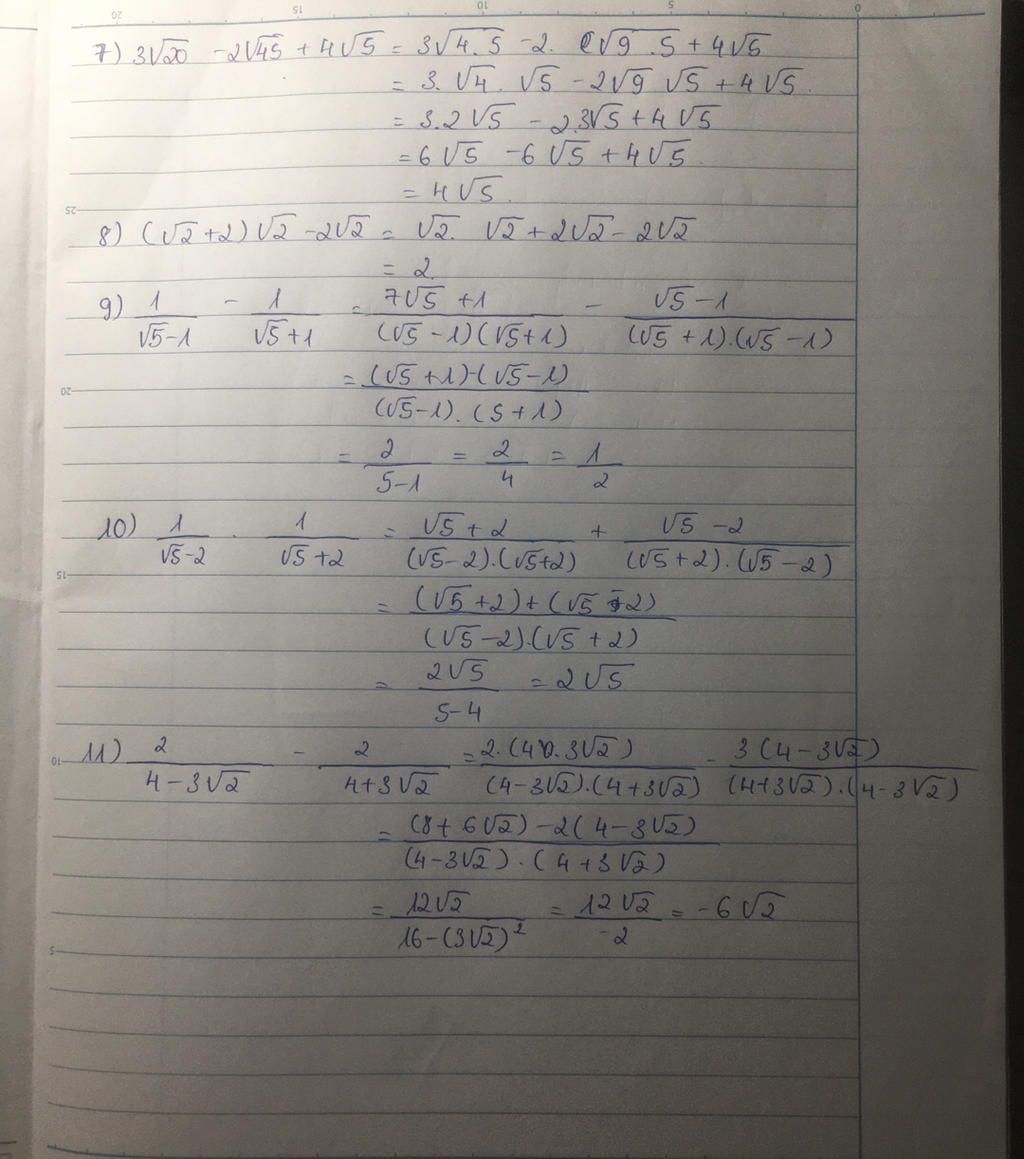 7) 3√20 - 2√45 + 4√5 = 3√4.5 - 2. √9.5 + 4√5
= 3. √4. √5 - 2√9 √5 + 4√5.
= 3.2√5 - 2.3√5 + 4√5
= 6√5 - 6√5 + 4√5.
= 4√5.
8) (√2 + 2)√2 - 2√2 = √2. √2 + 2√2 - 2√2
= 2.
9) 1/(√5-1) - 1/(√5+1) = (7√5 + 1)/((√5-1)(√5+1)) - (√5-1)/((√5+1).(√5-1))
= ((√5+1)-(√5-1))/((√5-1).(5+1))
= 2/(5-1) = 2/4 = 1/2
10) 1/(√5-2) . 1/(√5+2) = (√5+2)/((√5-2).(√5+2)) + (√5-2)/((√5+2).(√5-2))
= ((√5+2)+(√5-2))/((√5-2).(√5+2))
= 2√5/(5-4) = 2√5
11) 2/(4-3√2) - 2/(4+3√2) = 2.(4 . 3√2)/((4-3√2).(4+3√2)) - 3(4-3√2)/((4+3√2).(4-3√2))
= ((8+6√2)-2(4-3√2))/((4-3√2).(4+3√2))
= 12√2/(16-(3√2)²) = 12√2/-2 = -6√2
20
15
10
5
0
25
20
15
10
5